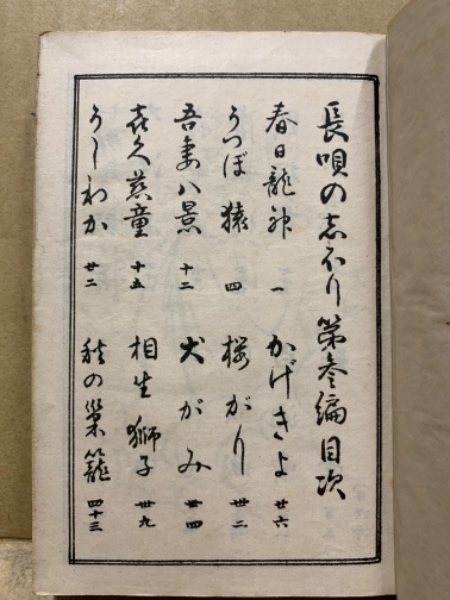 長唄の志をり第参編目次
春日龍神 一
うつぼ猿 四
吾妻八景 十二
喜久慈童 十五
うしわか 廿二
かげきよ 廿六
桜がり 卅二
犬がみ 卅四
相生獅子 卅九
雛の巣籠 四十三